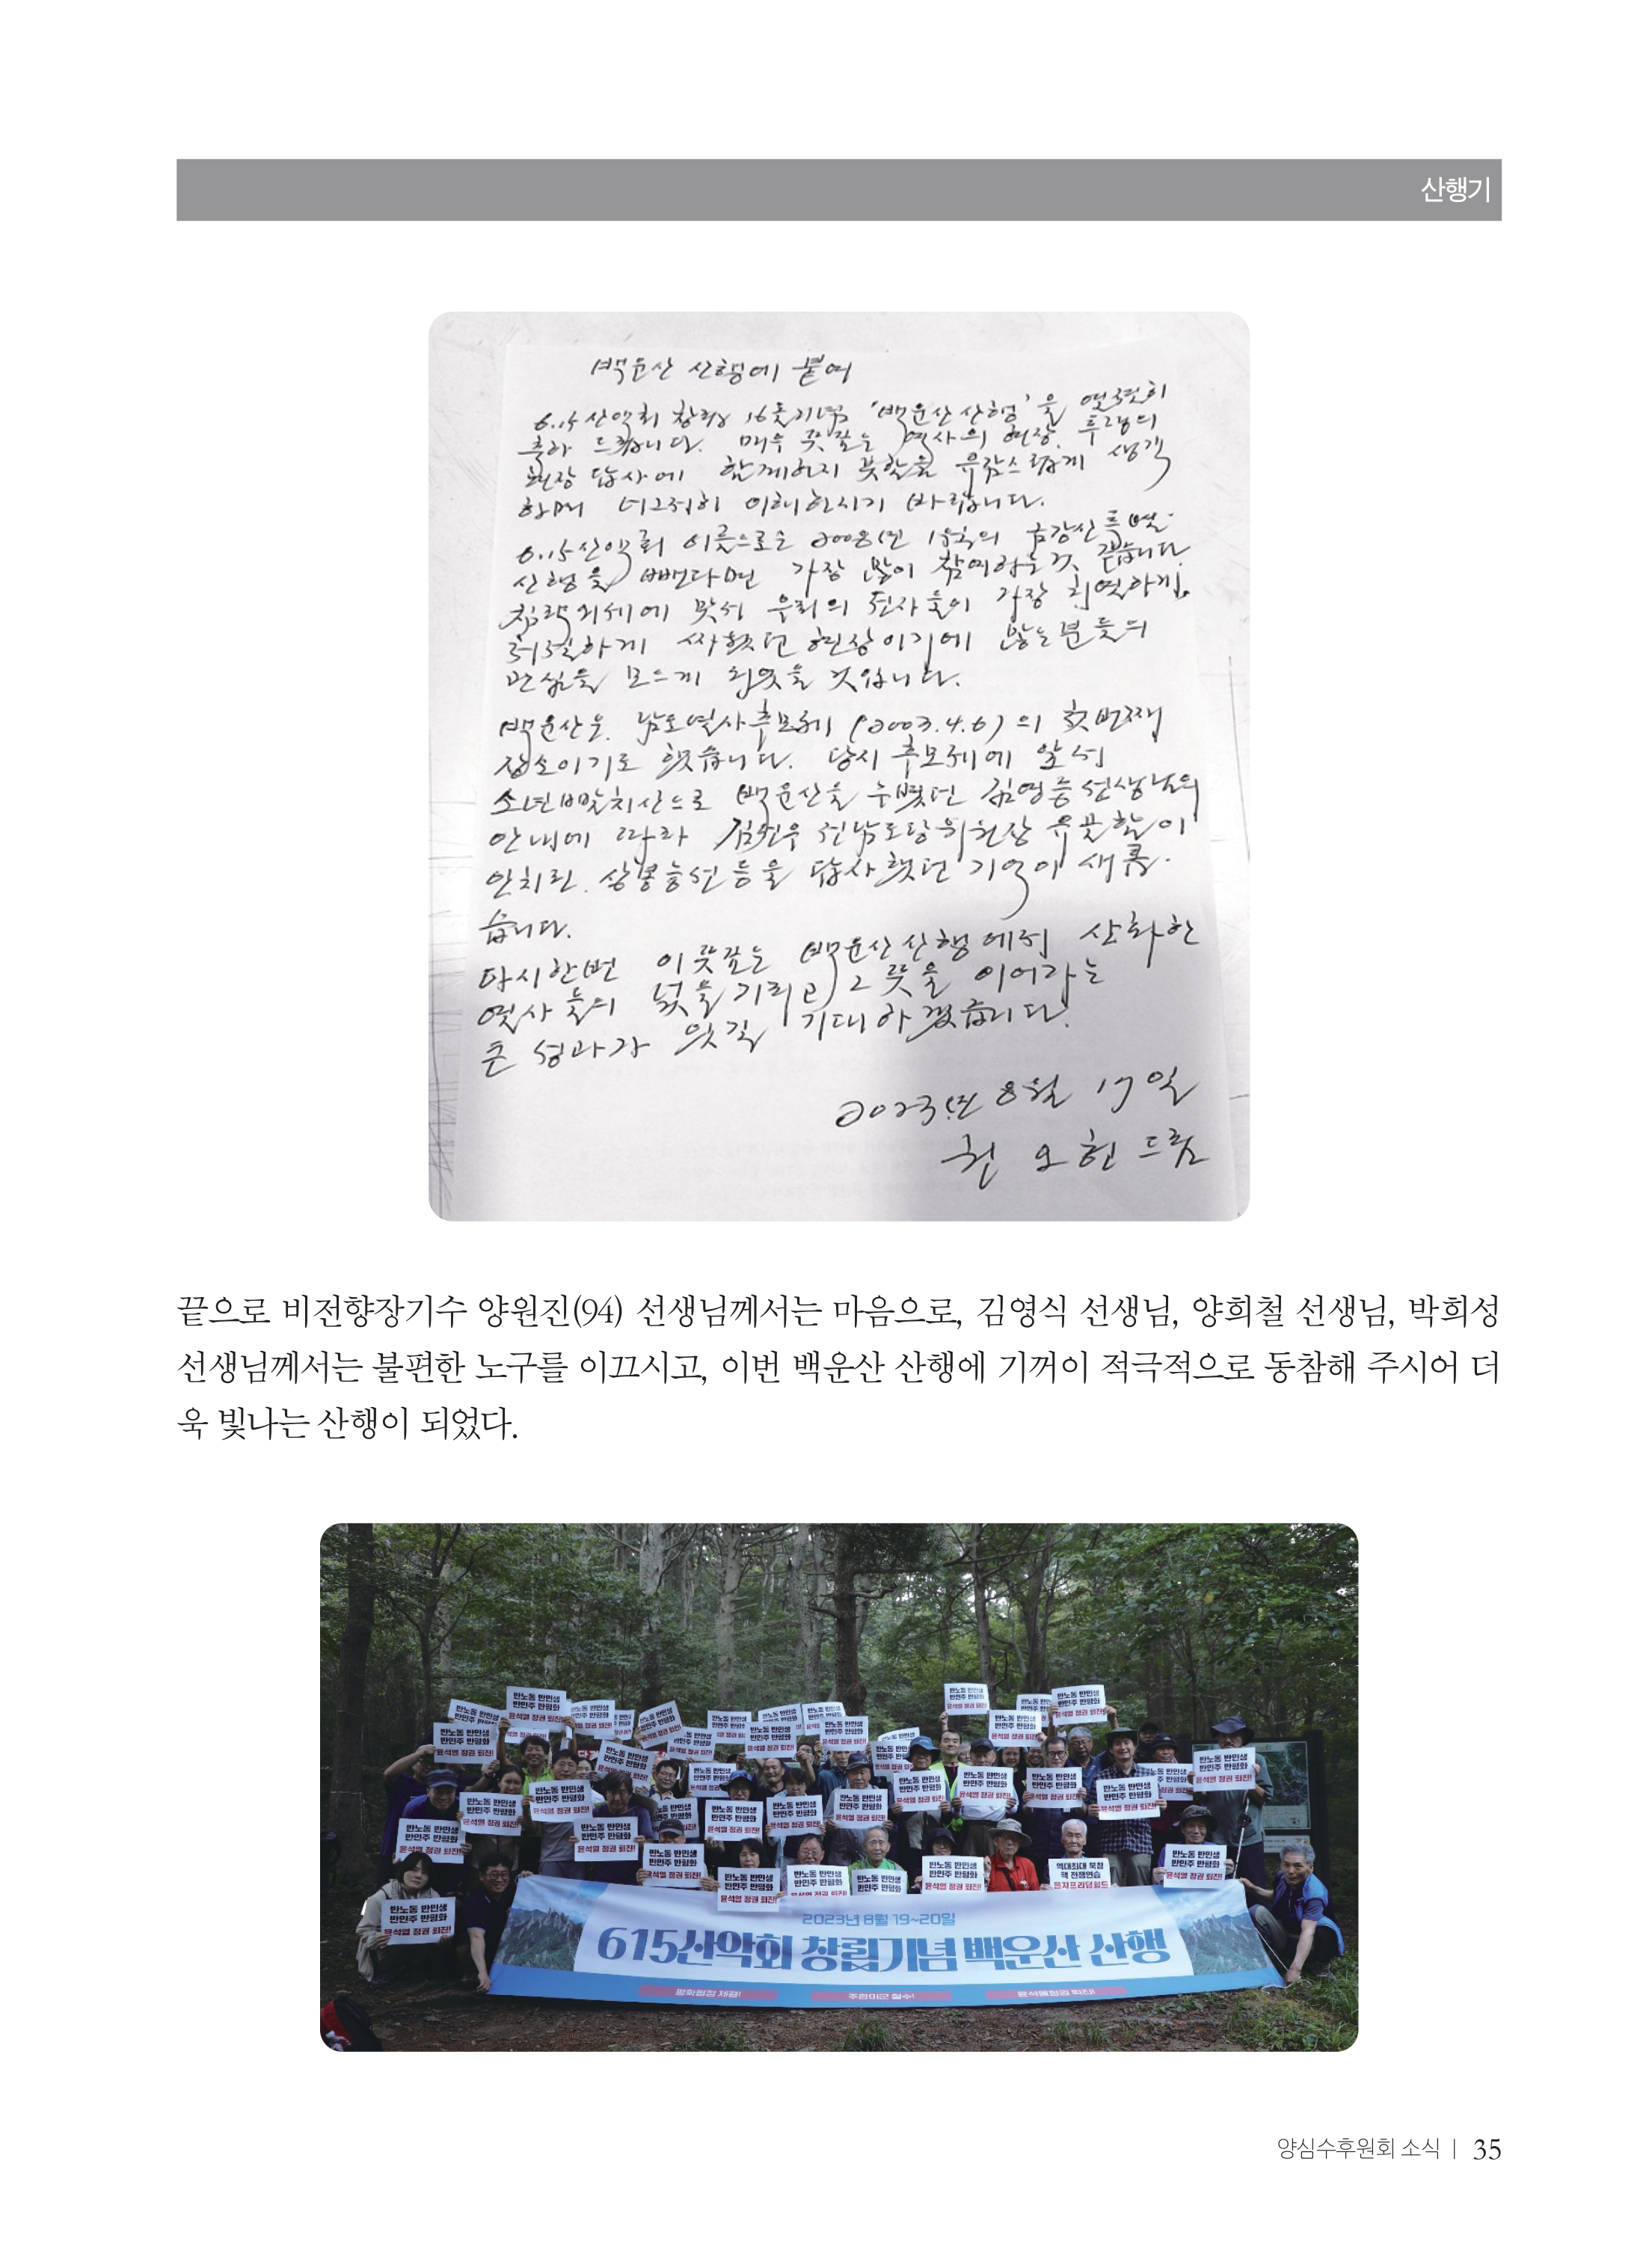 산행기
백운산 산행에 붙여
6.15산악회 창립 16돌기념 '백운산 산행'을 열렬히
축하 드립니다. 매우 뜻깊은 역사의 현장, 투쟁의
현장 답사에 함께하지 못함을 유감스럽게 생각
하며 너그러히 이해하시기 바랍니다.
6.15산악회 이름으로는 2008년 의 금강산특별
산행을 뺀다면 가장 많이 참여하는것 같습니다.
침략외세에 맞서 우리의 전사들이 가장 치열하게,
처절하게 싸웠던 현장이기에 많은분들의
관심을 모으게 되었을 것입니다.
백운산은 남도열사추모제 (2003.4.6)의 첫번째
장소이기도 했습니다. 당시 추모제에 앞서
소년빨치산으로 백운산을 누볐던 김영승선생님의
안내에 따라 김선우 전남도당위원장 유골이
안치된 상봉능선 등을 답사했던 기억이 새롭
습니다.
다시한번 이 뜻깊은 백운산산행에서 산화한
열사들의 넋을 기리고 그 뜻을 이어가는
큰 성과가 있길 기대하겠습니다.
2023년 8월 17일
권오헌 드림
끝으로 비전향장기수 양원진(94) 선생님께서는 마음으로, 김영식 선생님, 양희철 선생님, 박희성
선생님께서는 불편한 노구를 이끄시고, 이번 백운산 산행에 기꺼이 적극적으로 동참해 주시어 더
욱 빛나는 산행이 되었다.
반노동 반민생
반민주 반평화
윤석열 정권 퇴진!
역대최대 북침
핵 전쟁연습
을지프리덤쉴드
2023년 8월 19~20일
615산악회 창립기념 백운산 산행
평화협정 체결!
주한미군 철수!
윤석열정권 퇴진!
양심수후원회 소식 | 35